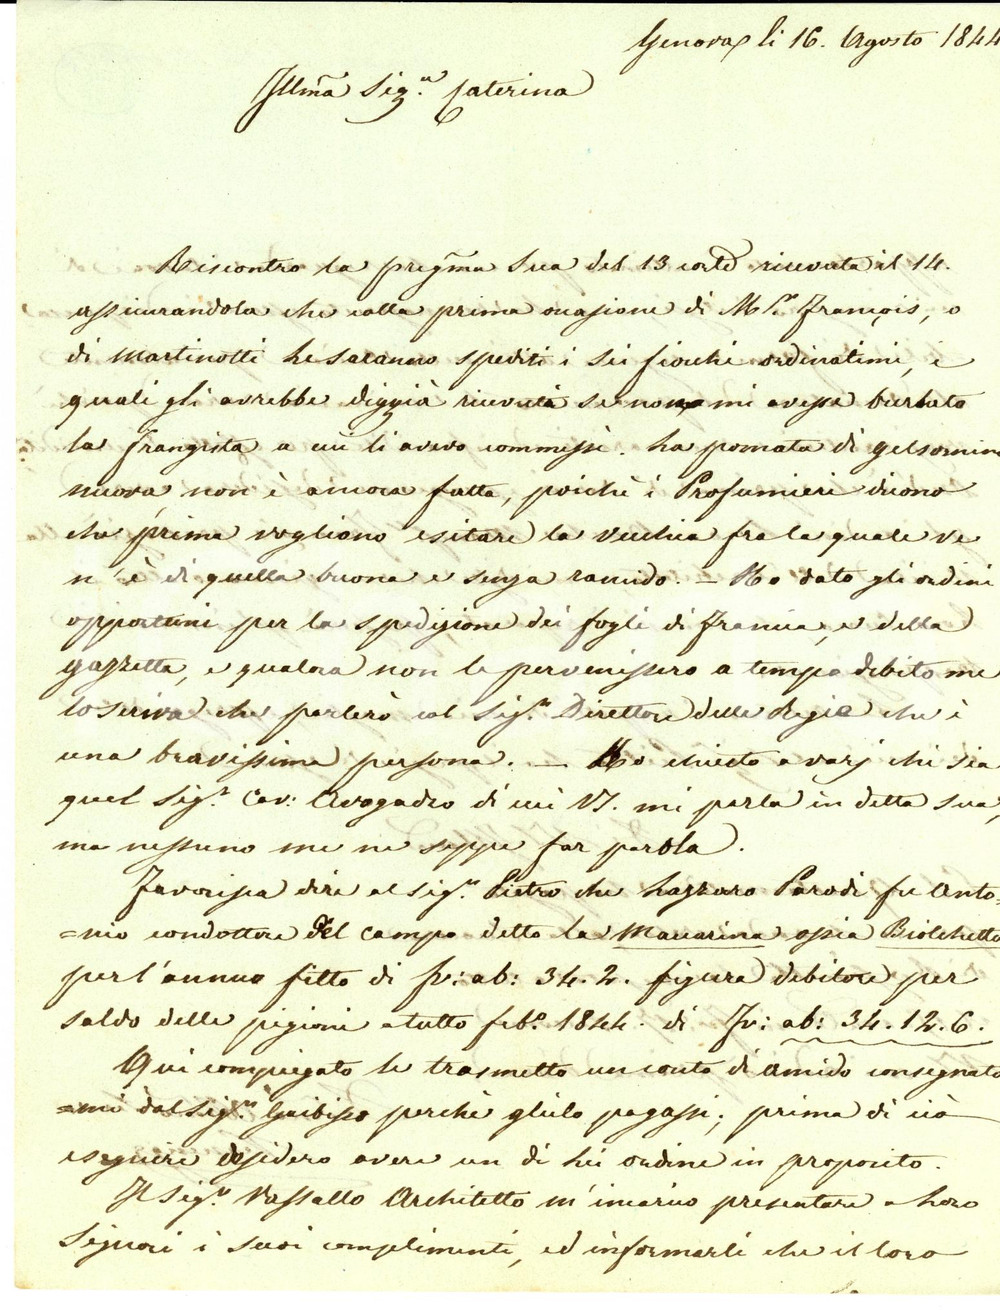 Genova li 16. Agosto 1844
Illma Sig.ra Caterina
Riscontro la pregma Sua del 13 corte ricevuta il 14.
assicurandola che colla prima ocasione di Mr. François, o
di Martinotti Le saranno spediti i sei fiochi ordinatimi, i
quali gli avrebbe diggià ricevuti se non mi avesse burlato
la frangista a cui li avevo commessi. La pomata di gelsomino
nuova non è ancora fatta, poichè i Profumieri dicono
che prima vogliono esitare la vecchia fra la quale ve
n'è di quella buona e senza ramido. – Ho dato gli ordini
opportuni per la spedizione dei fogli di Francia, e della
gazzetta, e qualora non le pervenissero a tempo debito me
lo scriva che parlerò col Sig.r Direttore delle Regie che è
una bravissima persona. – Ho chiesto a varj chi sia
quel Sig.r Cav: Avogadro di cui VS. mi parla in detta sua,
ma nessuno me ne seppe far parola.
Favorisca dire al Sig.r Pietro che Lazzaro Parodi fu Anto=
=nio condottore del campo detto la Macarina ossia Biolchetto
per l'annuo fitto di fr: ab: 34. 2. figura debitore per
saldo delle pigioni a tutto feb.o 1844. di Fr: ab: 34. 12. 6.
Qui compiegato le trasmetto un conto di amido consegnato
=mi dal Sig.r Guibisso perchè glielo pagassi; prima di ciò
eseguire desidero avere un di Lei ordine in proposito.
Il Sig.r Vassallo Architetto m'incarica presentare a Loro
Signori i suoi complimenti, ed informarli che il loro